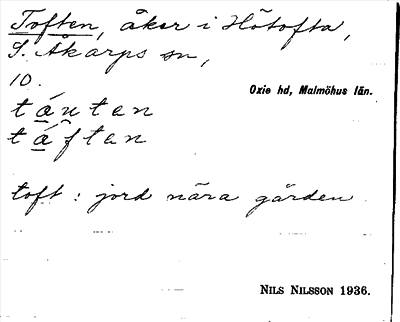 Toften, åker i Hötofta,
S. Åkarps sn,
10.
Oxie hd, Malmöhus län.
táuten
táften
toft : jord nära gården
NILS NILSSON 1936.